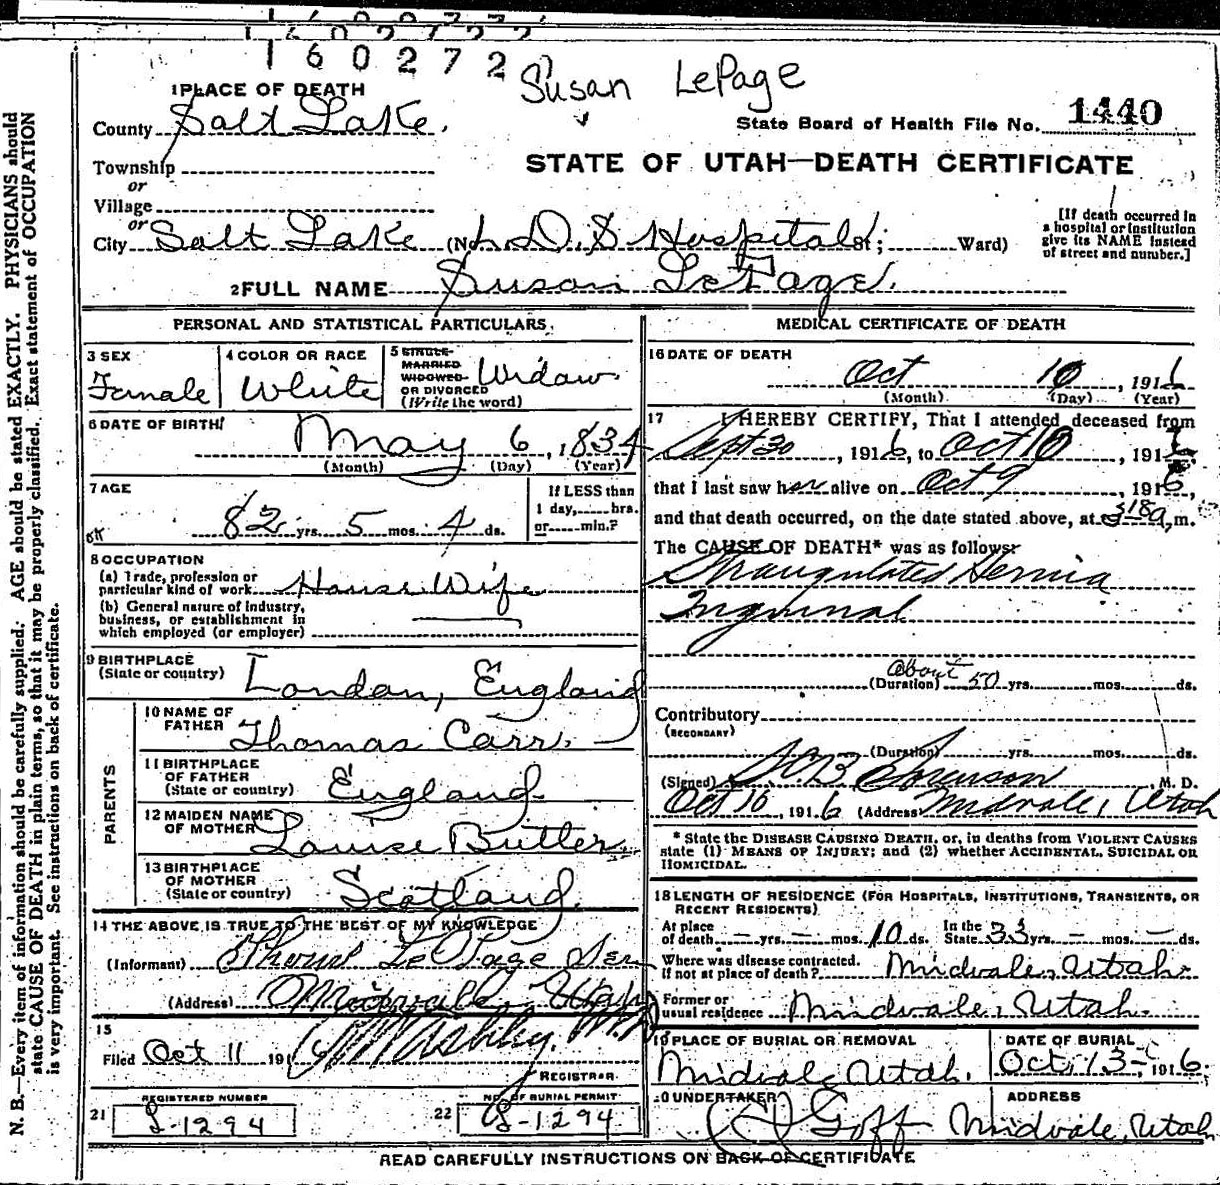 1602727
Susan LePage
1 PLACE OF DEATH
County Salt Lake.
State Board of Health File No. 1440
Township
or
Village
or
STATE OF UTAH—DEATH CERTIFICATE
City Salt Lake (No. L.D.S Hospital St; Ward)
[If death occurred in
a hospital or institution
give its NAME instead
of street and number.]
2 FULL NAME Susan LePage.
PERSONAL AND STATISTICAL PARTICULARS.
3 SEX
Female
4 COLOR OR RACE
White
5 SINGLE
MARRIED
WIDOWED
OR DIVORCED
(Write the word)
Widow
6 DATE OF BIRTH
May 6, 1834
(Month) (Day) (Year)
7 AGE
82 yrs. 5 mos. 4 ds.
If LESS than
1 day, hrs.
or min.?
8 OCCUPATION
(a) Trade, profession or
particular kind of work House Wife
(b) General nature of industry,
business, or establishment in
which employed (or employer)
9 BIRTHPLACE
(State or country) London, England
PARENTS
10 NAME OF
FATHER Thomas Carr.
11 BIRTHPLACE
OF FATHER
(State or country) England
12 MAIDEN NAME
OF MOTHER Louise Butler
13 BIRTHPLACE
OF MOTHER
(State or country) Scotland.
14 THE ABOVE IS TRUE TO THE BEST OF MY KNOWLEDGE
(Informant) LePage
(Address) Midvale, Utah
15
Filed Oct 11 191
REGISTRAR.
REGISTERED NUMBER
21 S-1294
NO. OF BURIAL PERMIT
22 S-1294
MEDICAL CERTIFICATE OF DEATH
16 DATE OF DEATH
Oct 10, 1916
(Month) (Day) (Year)
17 I HEREBY CERTIFY, That I attended deceased from
Sept 30, 1916, to Oct 10, 1916
that I last saw her alive on Oct 9, 1916,
and that death occurred, on the date stated above, at 3 18 a, m.
The CAUSE OF DEATH* was as follows:
Strangulated Hernia
Inguinal
about
(Duration) 50 yrs. mos. ds.
Contributory
(SECONDARY)
(Duration) yrs. mos. ds.
(Signed) Sorenson M. D.
Oct 16, 1916 (Address Midvale, Utah
* State the DISEASE CAUSING DEATH, or, in deaths from VIOLENT CAUSES
state (1) MEANS OF INJURY; and (2) whether ACCIDENTAL, SUICIDAL OR
HOMICIDAL.
18 LENGTH OF RESIDENCE (FOR HOSPITALS, INSTITUTIONS, TRANSIENTS, OR
RECENT RESIDENTS)
At place
of death — yrs. — mos. 10 ds.
In the
State 33 yrs. — mos. — ds.
Where was disease contracted.
if not at place of death? Midvale, Utah.
Former or
usual residence Midvale, Utah.
19 PLACE OF BURIAL OR REMOVAL
Midvale, Utah.
DATE OF BURIAL
Oct, 13— 1916.
20 UNDERTAKER
Goff
ADDRESS
Midvale, Utah
READ CAREFULLY INSTRUCTIONS ON BACK OF CERTIFICATE
N. B.—Every item of information should be carefully supplied. AGE should be stated EXACTLY. PHYSICIANS should
state CAUSE OF DEATH in plain terms, so that it may be properly classified. Exact statement of OCCUPATION
is very important. See instructions on back of certificate.